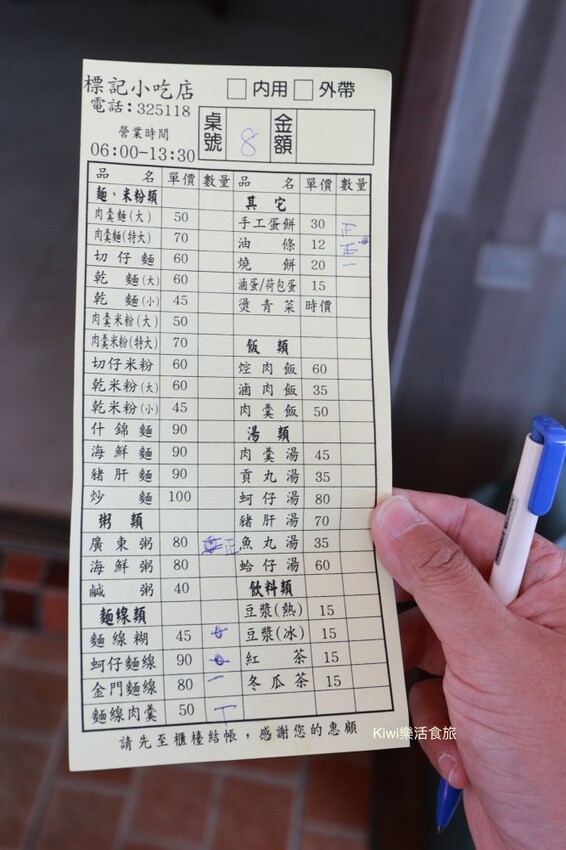 標記小吃店
電話:325118
營業時間
06:00-13:30
□內用□外帶
桌號 8 金額
品名 單價 數量 品名 單價 數量
麵、米粉類
肉羹麵(大) 50
肉羹麵(特大) 70
切仔麵 60
乾麵(大) 60
乾麵(小) 45
肉羹米粉(大) 50
肉羹米粉(特大) 70
切仔米粉 60
乾米粉(大) 60
乾米粉(小) 45
什錦麵 90
海鮮麵 90
豬肝麵 90
炒麵 100
粥類
廣東粥 80 正
海鮮粥 80
鹹粥 40
麵線類
麵線糊 45
蚵仔麵線 90
金門麵線 80 一
麵線肉羹 50 丅
其它
手工蛋餅 30 正
油條 12
燒餅 20 一
滷蛋/荷包蛋 15
燙青菜 時價
飯類
焢肉飯 60
滷肉飯 35
肉羹飯 50
湯類
肉羹湯 45
貢丸湯 35
蚵仔湯 80
豬肝湯 70
魚丸湯 35
蛤仔湯 60
飲料類
豆漿(熱) 15
豆漿(冰) 15
紅茶 15
冬瓜茶 15
請先至櫃檯結帳,感謝您的惠顧
Kiwi樂活食旅